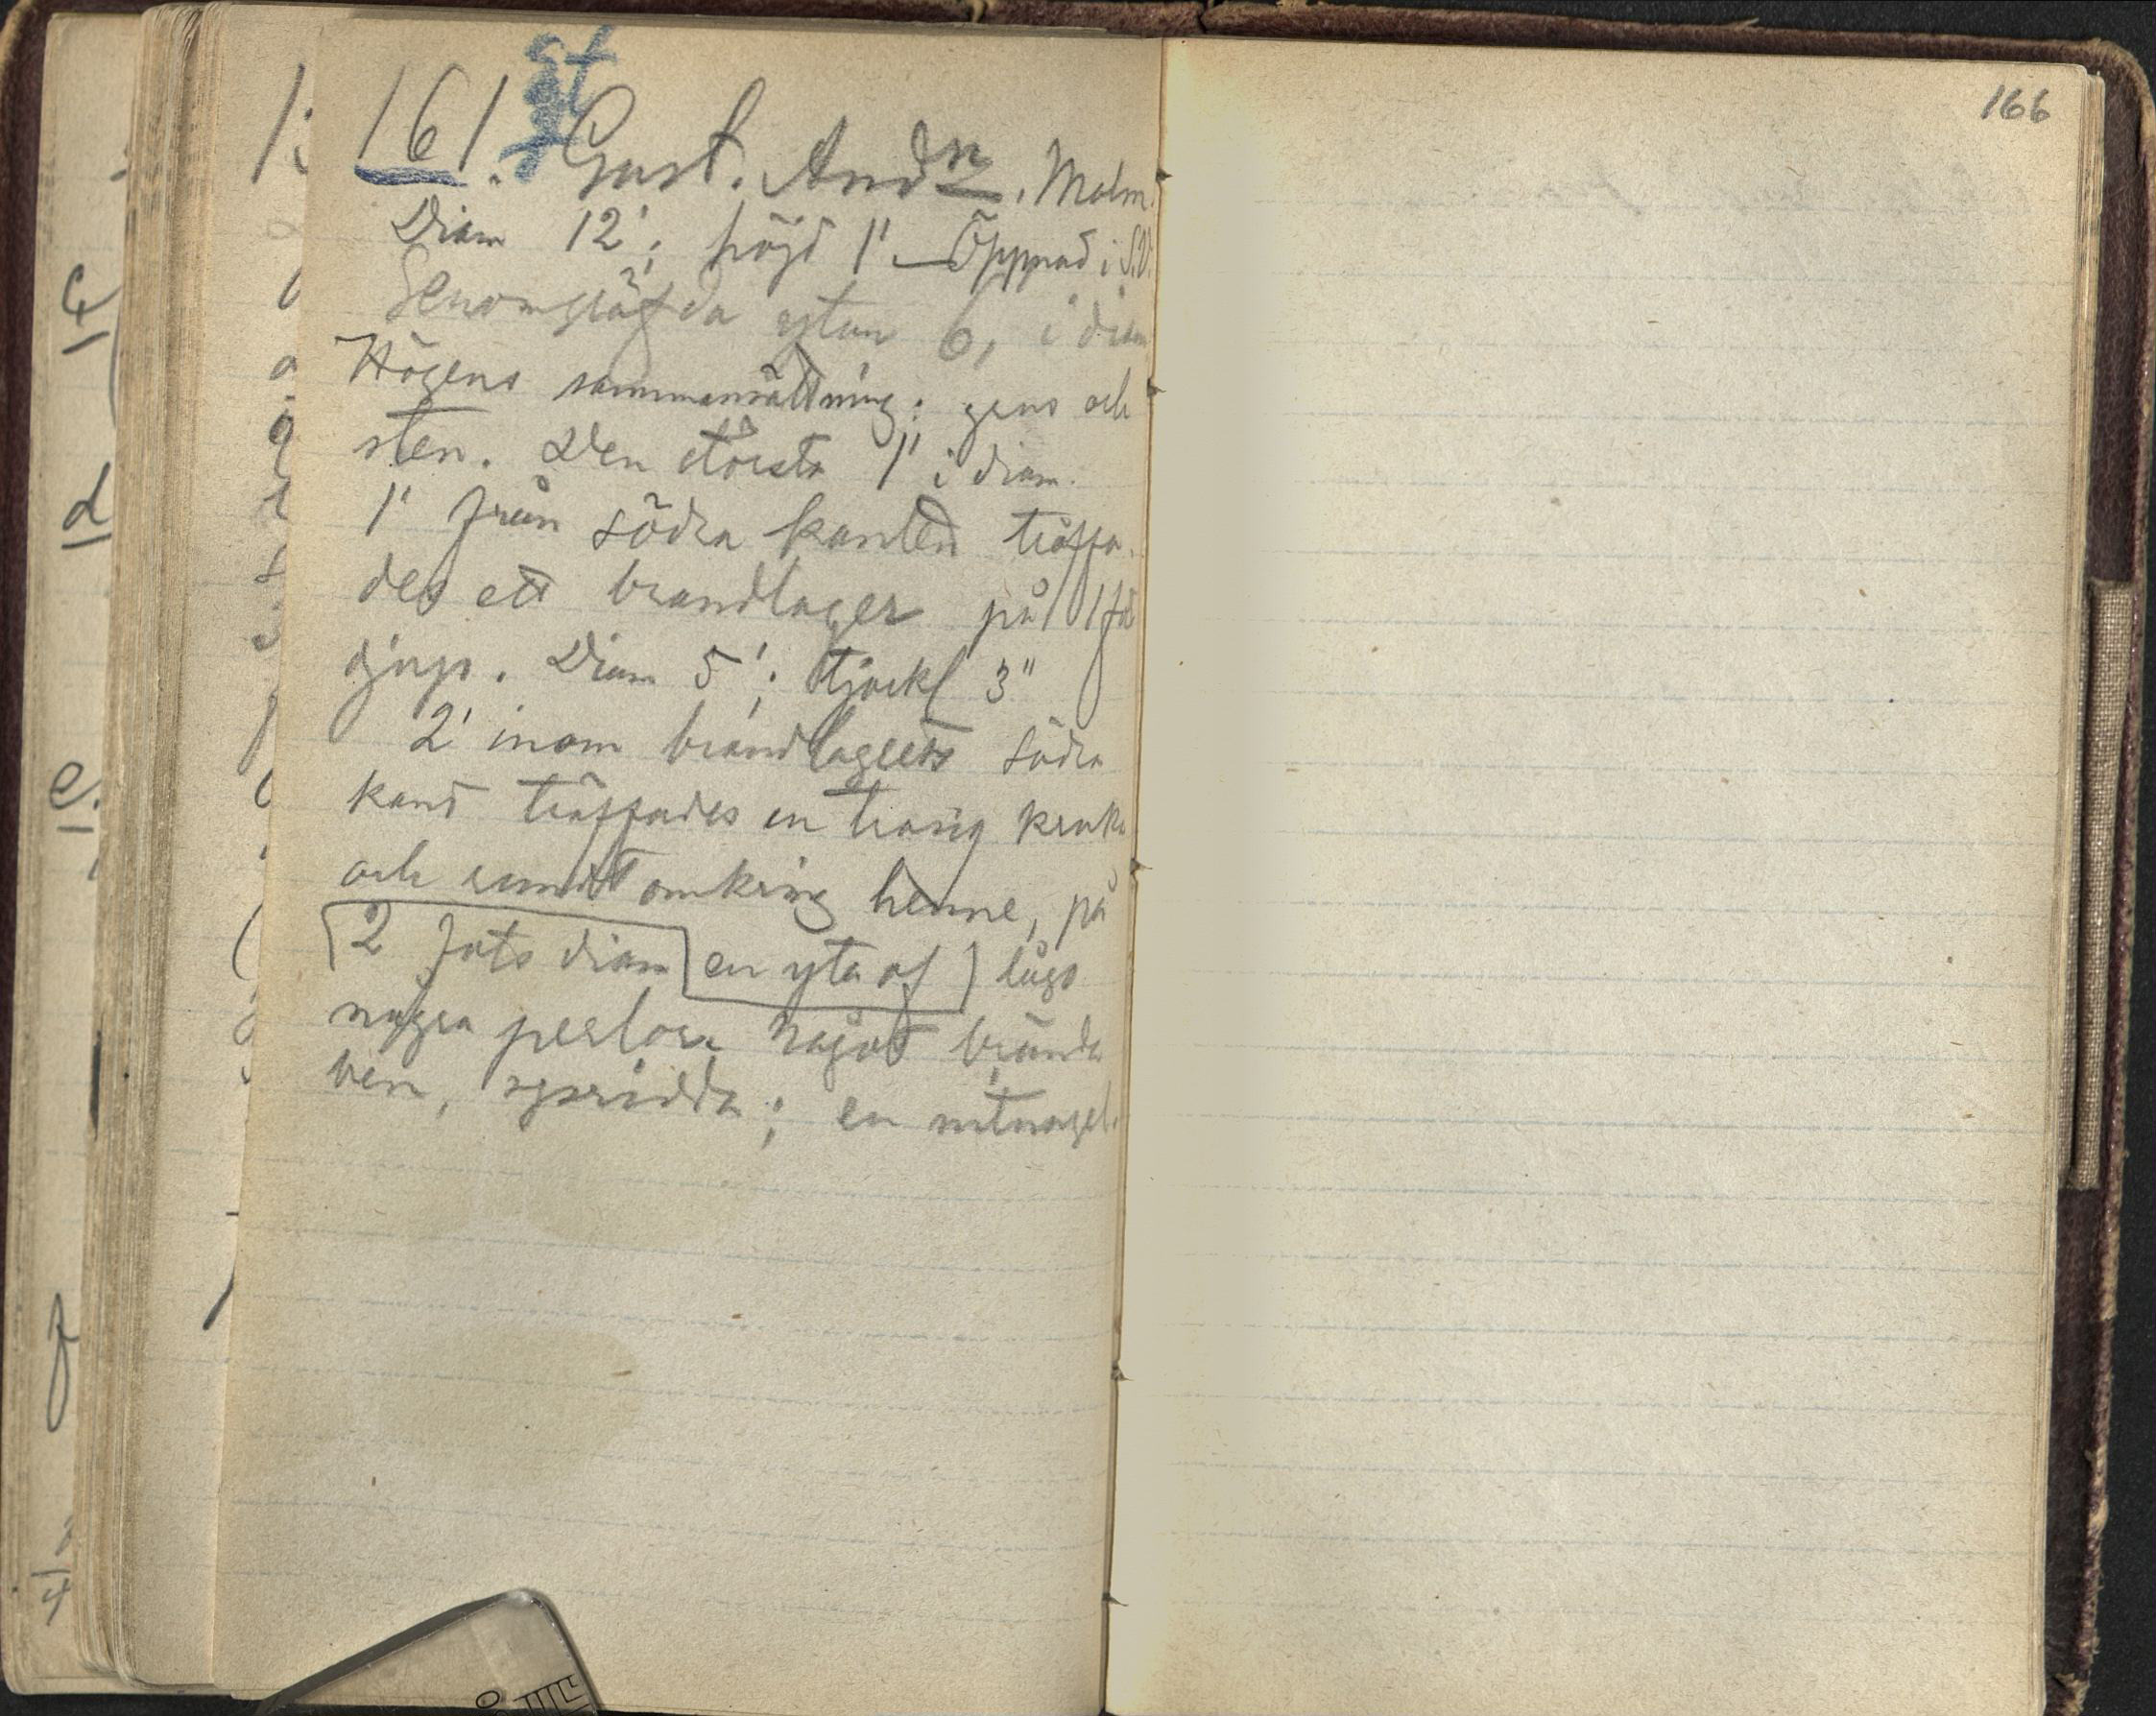 166
161. Gust. And<u>n</u>. Malm.
Diam 12'; höjd 1' — Öppnad i S.V.
Genomgräfda ytan 6, i diam
Högens sammansättning: grus och
sten. Den största 1' i diam.
1' från södra kanten träffa-
des ett brandlager på 1 fots
djup. Diam 5'; tjockl 3"
2' inom brandlagrets södra
kant träffades en trasig kruka
och rundt omkring henne, på
2 fots diam en yta af lågo
några perlor, något brända
ben, spridda; en nitnagel.